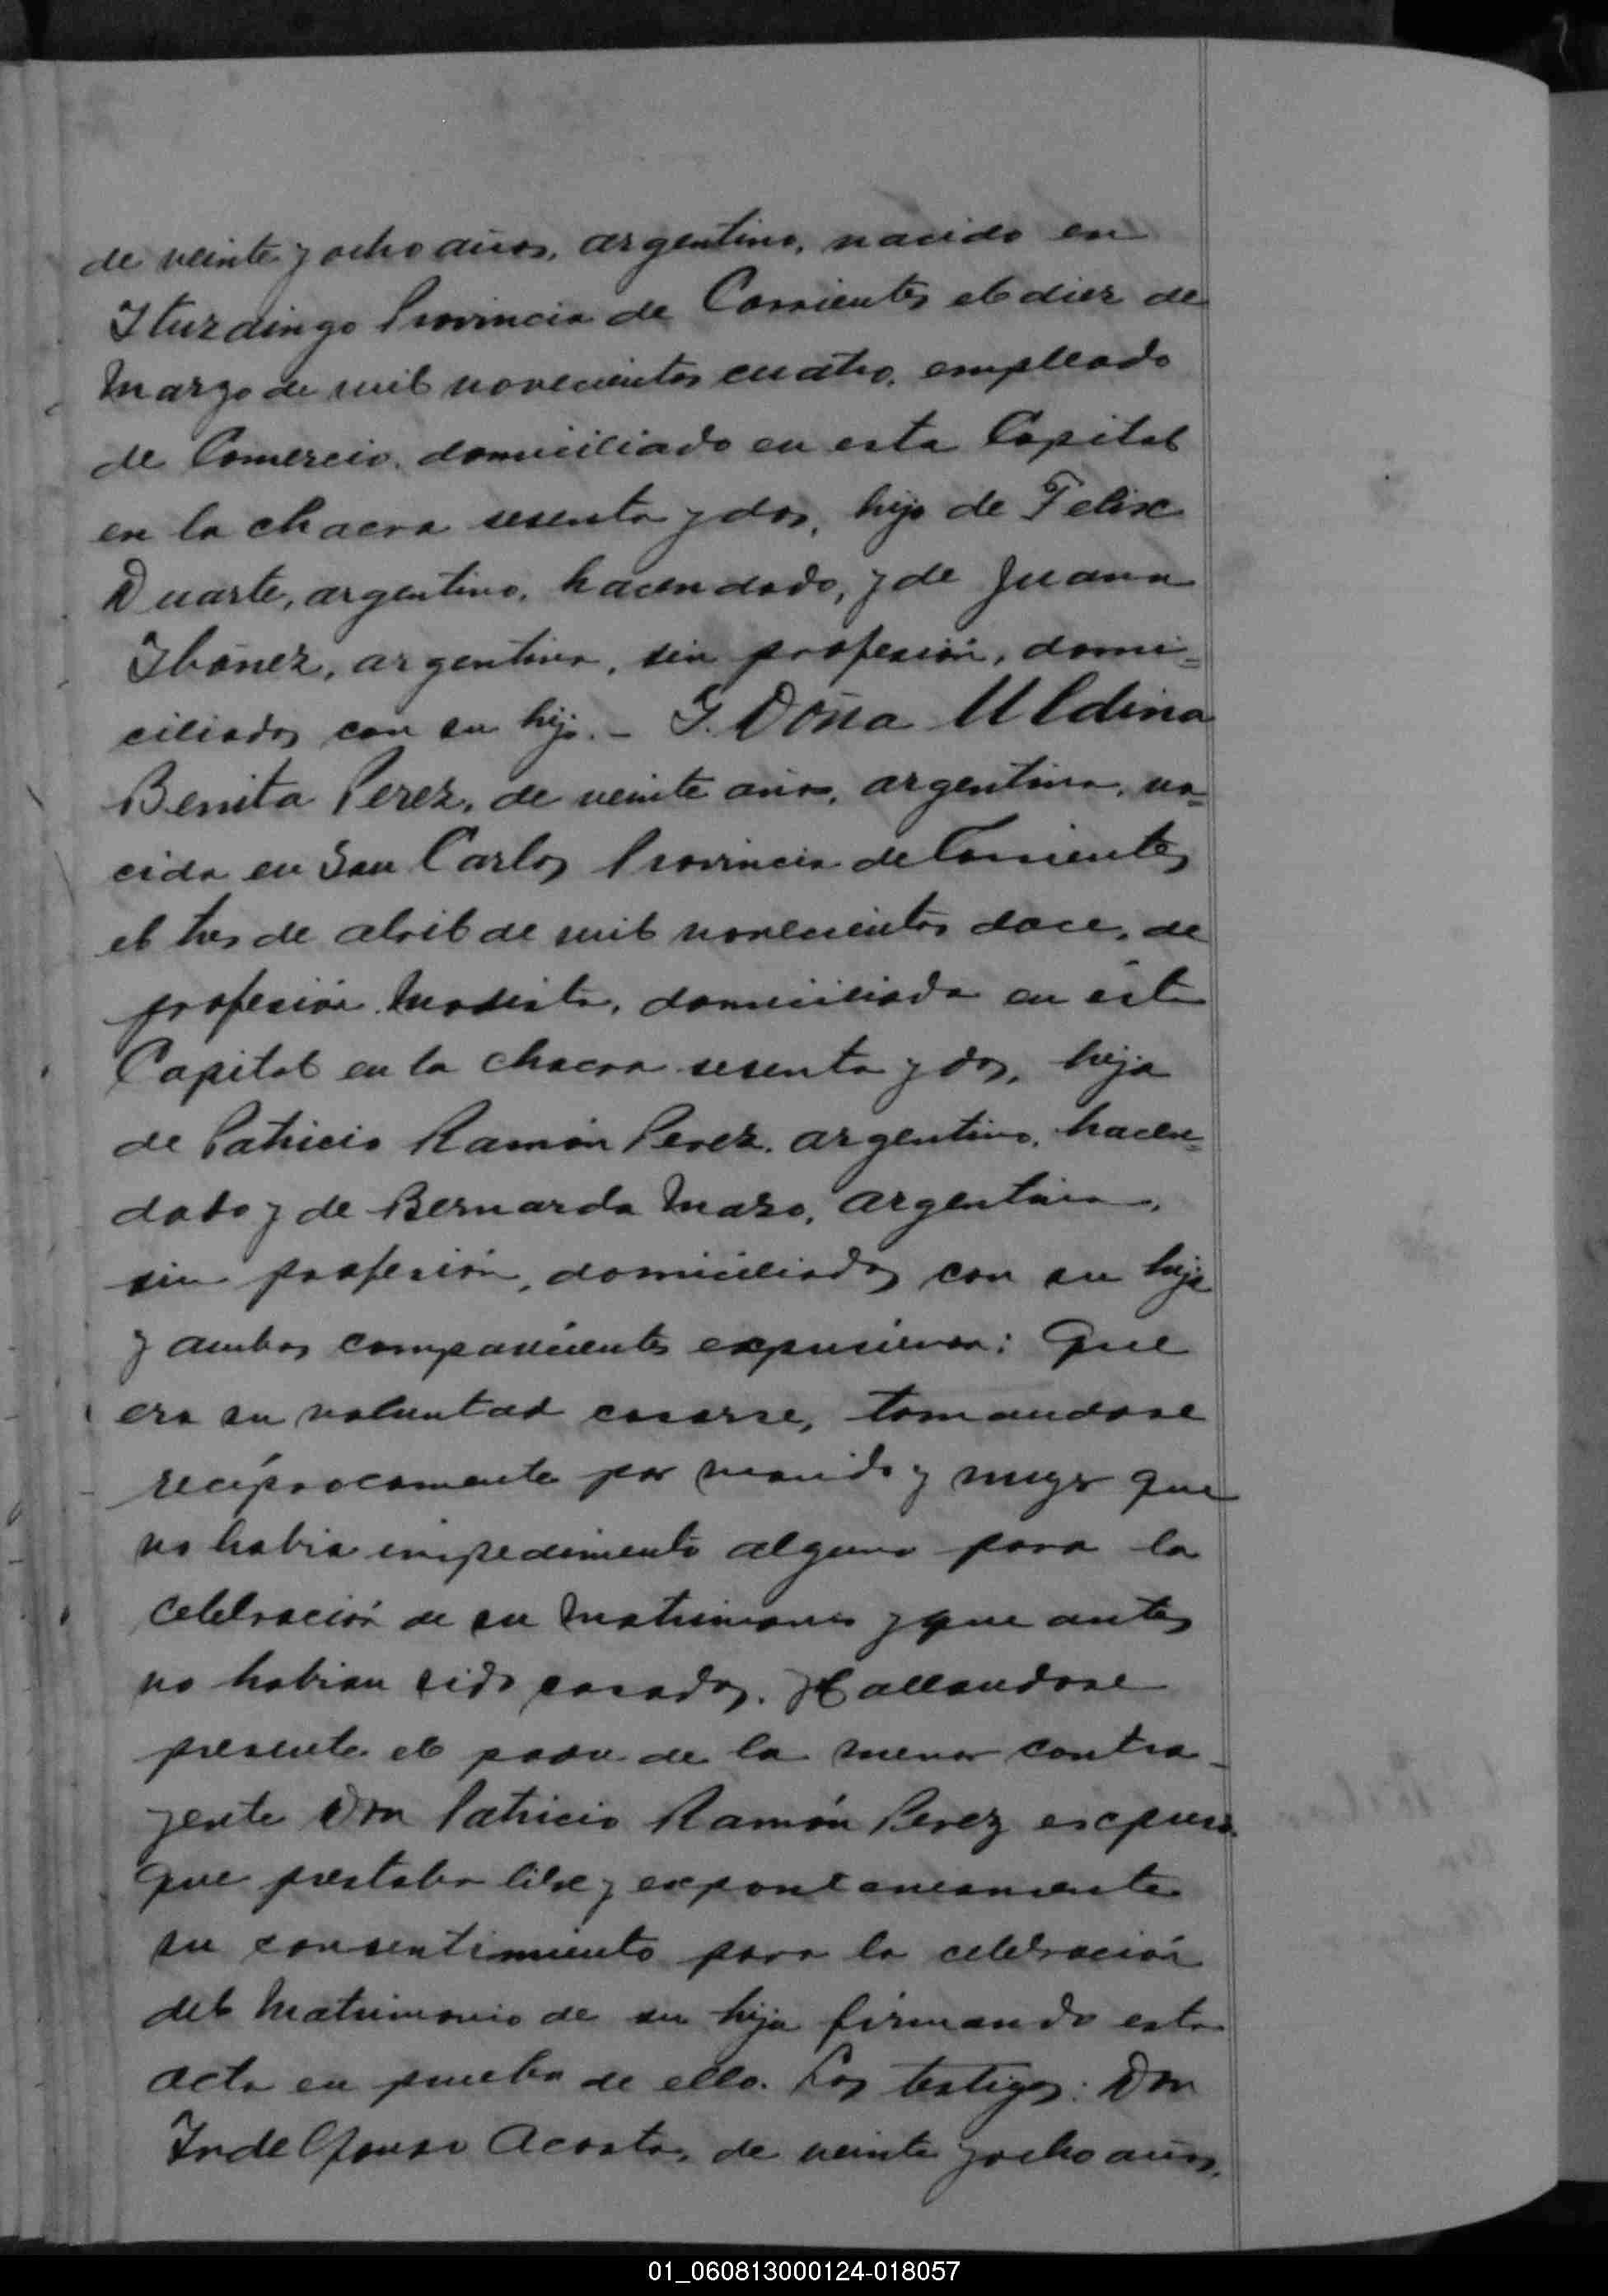 de veinte y ocho años, argentino, nacido en
Ituzaingo Provincia de Corrientes el diez de
Marzo de mil novecientos cuatro, empleado
de Comercio, domiciliado en esta Capital
en la chacra sesenta y dos, hijo de Felix
Duarte, argentino, hacendado, y de Juana
Ibánez, argentina, sin profesión, domi=
ciliados con su hijo.- Y. Doña Uldina
Benita Perez, de veinte años, argentina, na=
cida en San Carlos Provincia de Corrientes
el tres de abril de mil novecientos doce, de
profesión Modista, domiciliada en ésta
Capital en la chacra sesenta y dos, hija
de Patricio Ramón Perez, argentino, hacen=
dado y de Bernarda Mazo, argentina,
sin profesión, domiciliados con su hija
y ambos comparecientes expusieron: Que
era su voluntad casarse, tomandose
recíprocamente por marido y mujer que
no habia impedimento alguno para la
celebración de su Matrimonio y que antes
no habian sido casados. Hallandose
presente el padre de la menor contra-
yente Don Patricio Ramón Perez expuso
que prestaba libre y expontaneamente
su consentimiento para la celebración
del Matrimonio de su hija firmando esta
acta en prueba de ello. Los testigos: Don
Indelfonso Acosta, de veinte y ocho años,
01_060813000124-018057